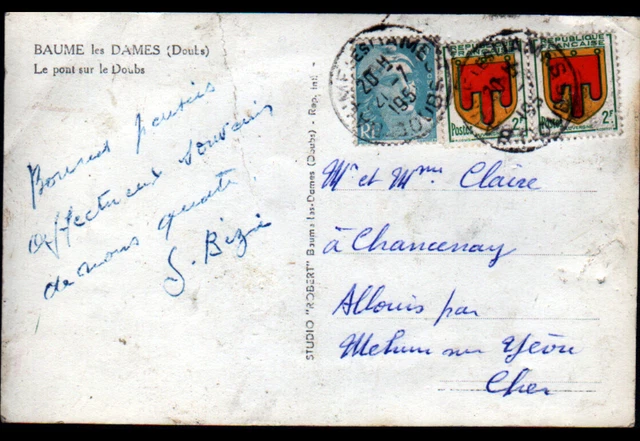 BAUME les DAMES (Doubs)
Le pont sur le Doubs
Bonnes pensées
affectueux souvenirs
de nous quatre
S. Bézie
STUDIO "ROBERT" Baume-les-Dames (Doubs) - Rep. Int. -
RF
REPUBLIQUE FRANÇAISE
Postes 2F
REPUBLIQUE FRANÇAISE
2F
20 H
21 - 7
195
DOUBS
Mr et Mme Claire
à Chancenay
Allouis par
Mehun sur Yèvre
Cher